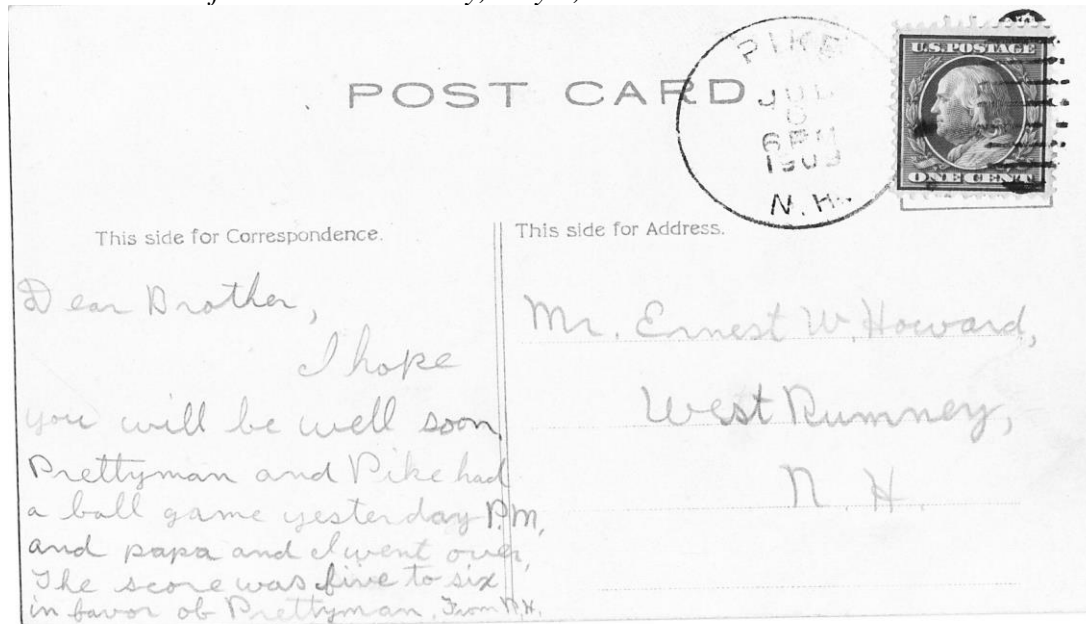 POST CARD
PIKE
JUL
6 PM
1909
N. H.
U.S. POSTAGE
ONE CENT
This side for Correspondence.
Dear Brother,
I hope
you will be well soon.
Prettyman and Pike had
a ball game yesterday P.M,
and papa and I went over,
The score was five to six
in favor of Prettyman. From
This side for Address.
Mr. Ernest W. Howard,
West Rumney,
N. H.